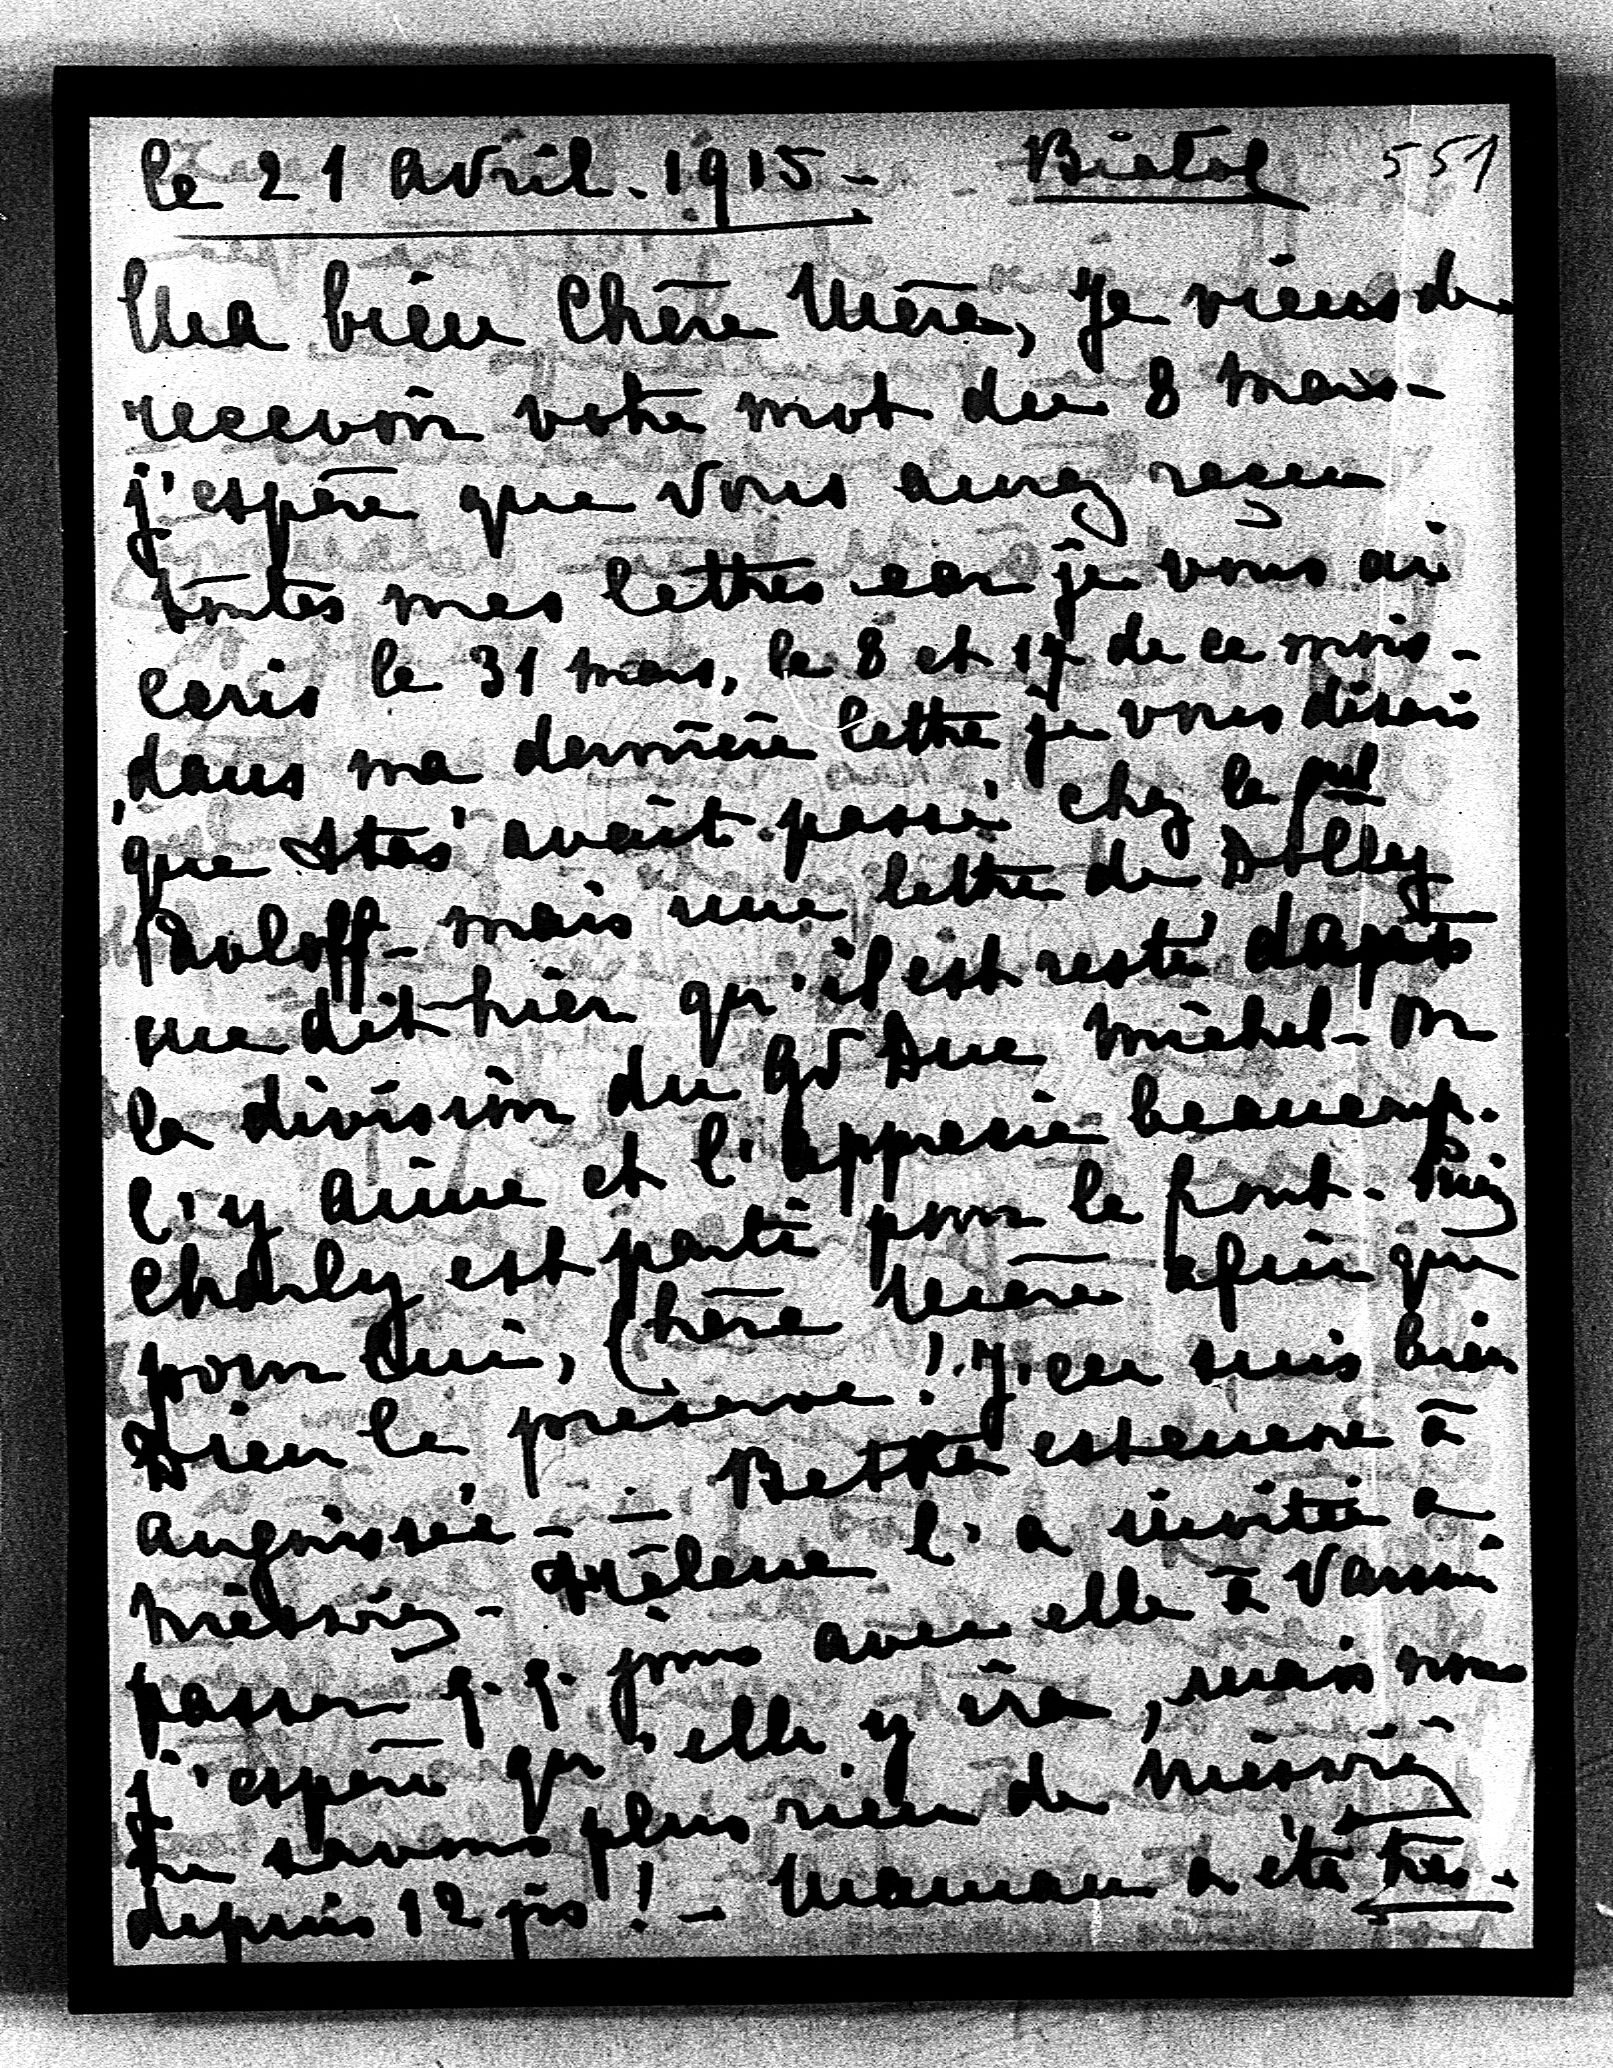 le 21 avril. 1915 - Biatol 551
Ma bien Chère Mère, je viens de
recevoir votre mot du 8 mars -
j'espère que vous aurez reçu
toutes mes lettres car je vous ai
écris le 31 mars, le 8 et 17 de ce mois -
dans ma dernière lettre je vous disais
que Stas' avait passé chez le
Pavloff - mais une lettre de Dolly
me dit hier qu'il est resté dépit
la division du Gd Duc Michel - on
l'y aime et l'apprecie beaucoup.
Charly est parti pour le front. Priez
pour lui, Chère Mère afin que
Dieu le préserve! j'en suis bien
angoissée - - Betka est encore à
Nieswiez - Hélène l'a invitée à
passer q.q. jours avec elle à Varsovie
j'espère qu'elle y ira, mais nous
ne savons plus rien de Nieswiez
depuis 12 jrs! - Maman a été très -